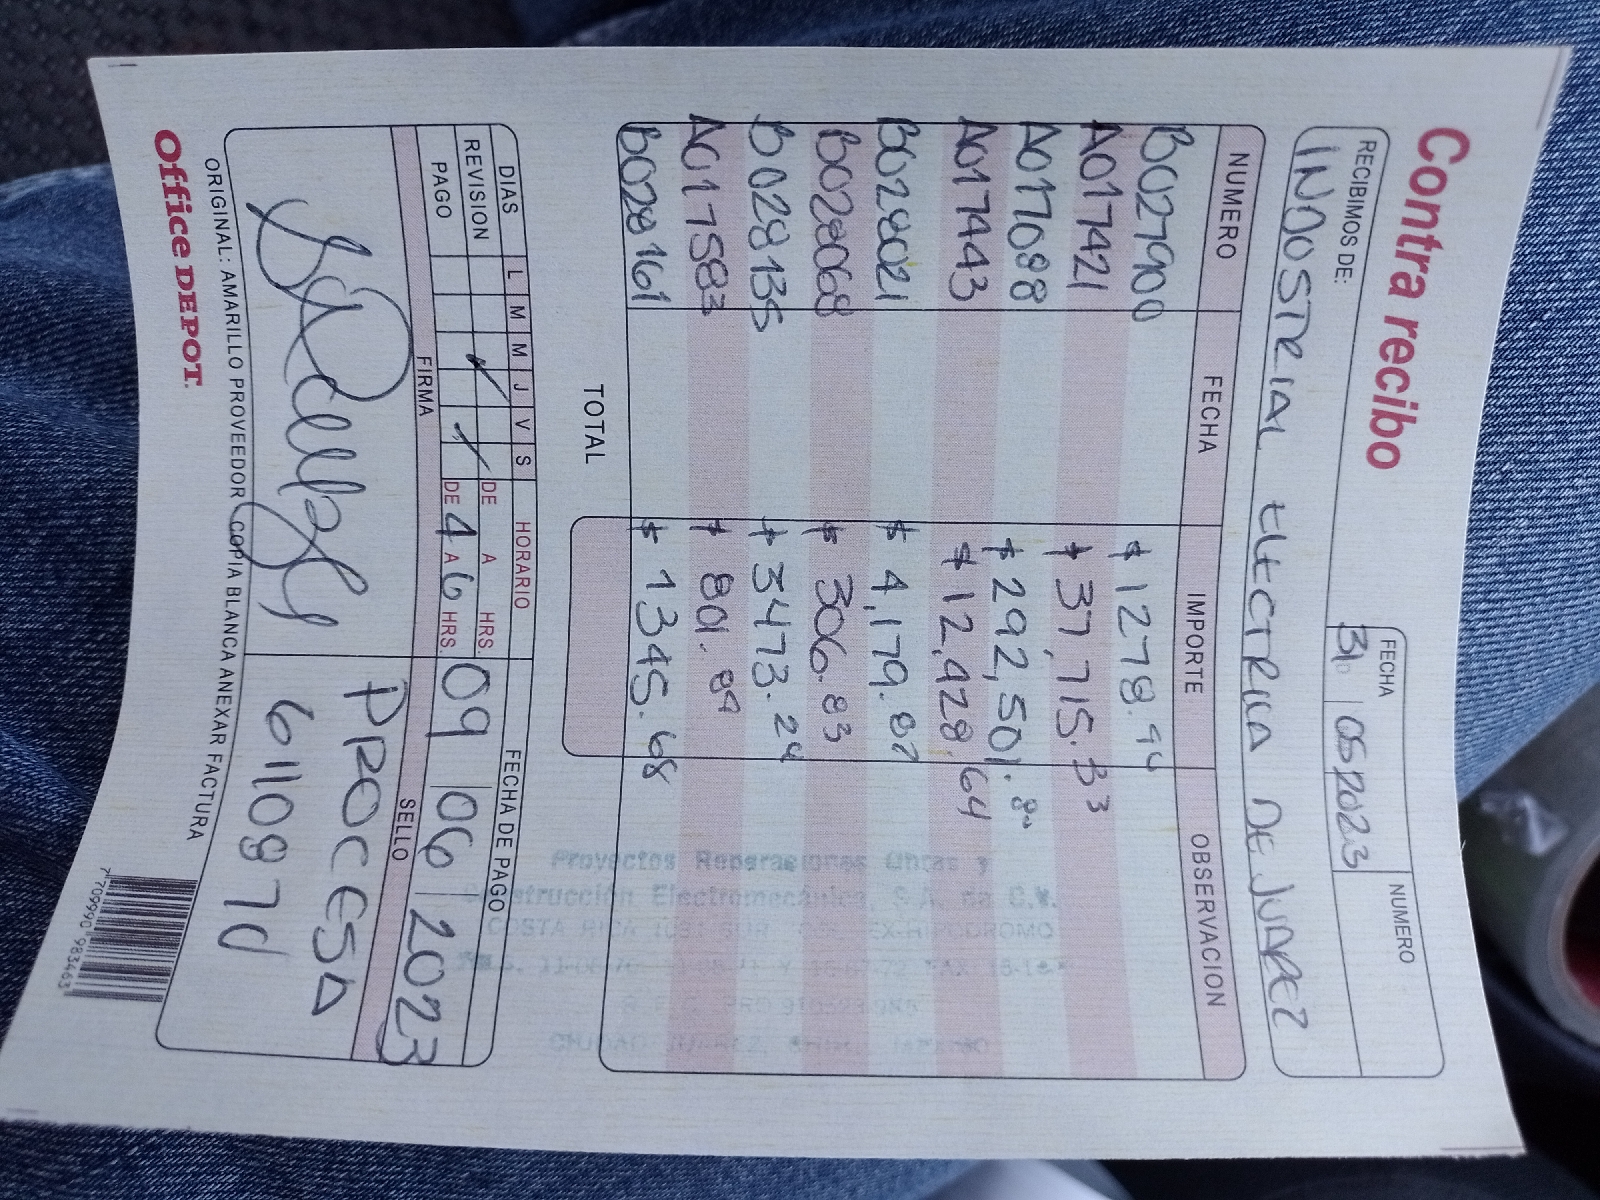 Contra recibo
FECHA NUMERO
31 05 2023
RECIBIMOS DE:
INDUSTRIAL ELECTRICA DE JUAREZ
NUMERO FECHA IMPORTE OBSERVACION
B027900 $ 1278.94
A017421 $ 37,715.33
A017088 $ 292,501.80
A017443 $ 12,928.64
B028021 $ 4,179.87
B028068 $ 306.83
B028135 $ 3473.24
A017583 $ 801.89
B028161 $ 1345.68
TOTAL
Proyectos Reparaciones Obras y
Construcción Electromecánica, S.A. de C.V.
COSTA RICA SUR EX-HIPODROMO
CIUDAD JUAREZ, CHIH.
DIAS L M M J V S HORARIO FECHA DE PAGO
REVISION DE A HRS.
PAGO DE 4 A 6 HRS. 09 06 2023
FIRMA SELLO
PROCESA
6110871
ORIGINAL: AMARILLO PROVEEDOR COPIA BLANCA ANEXAR FACTURA
Office DEPOT.
7 709990 983463